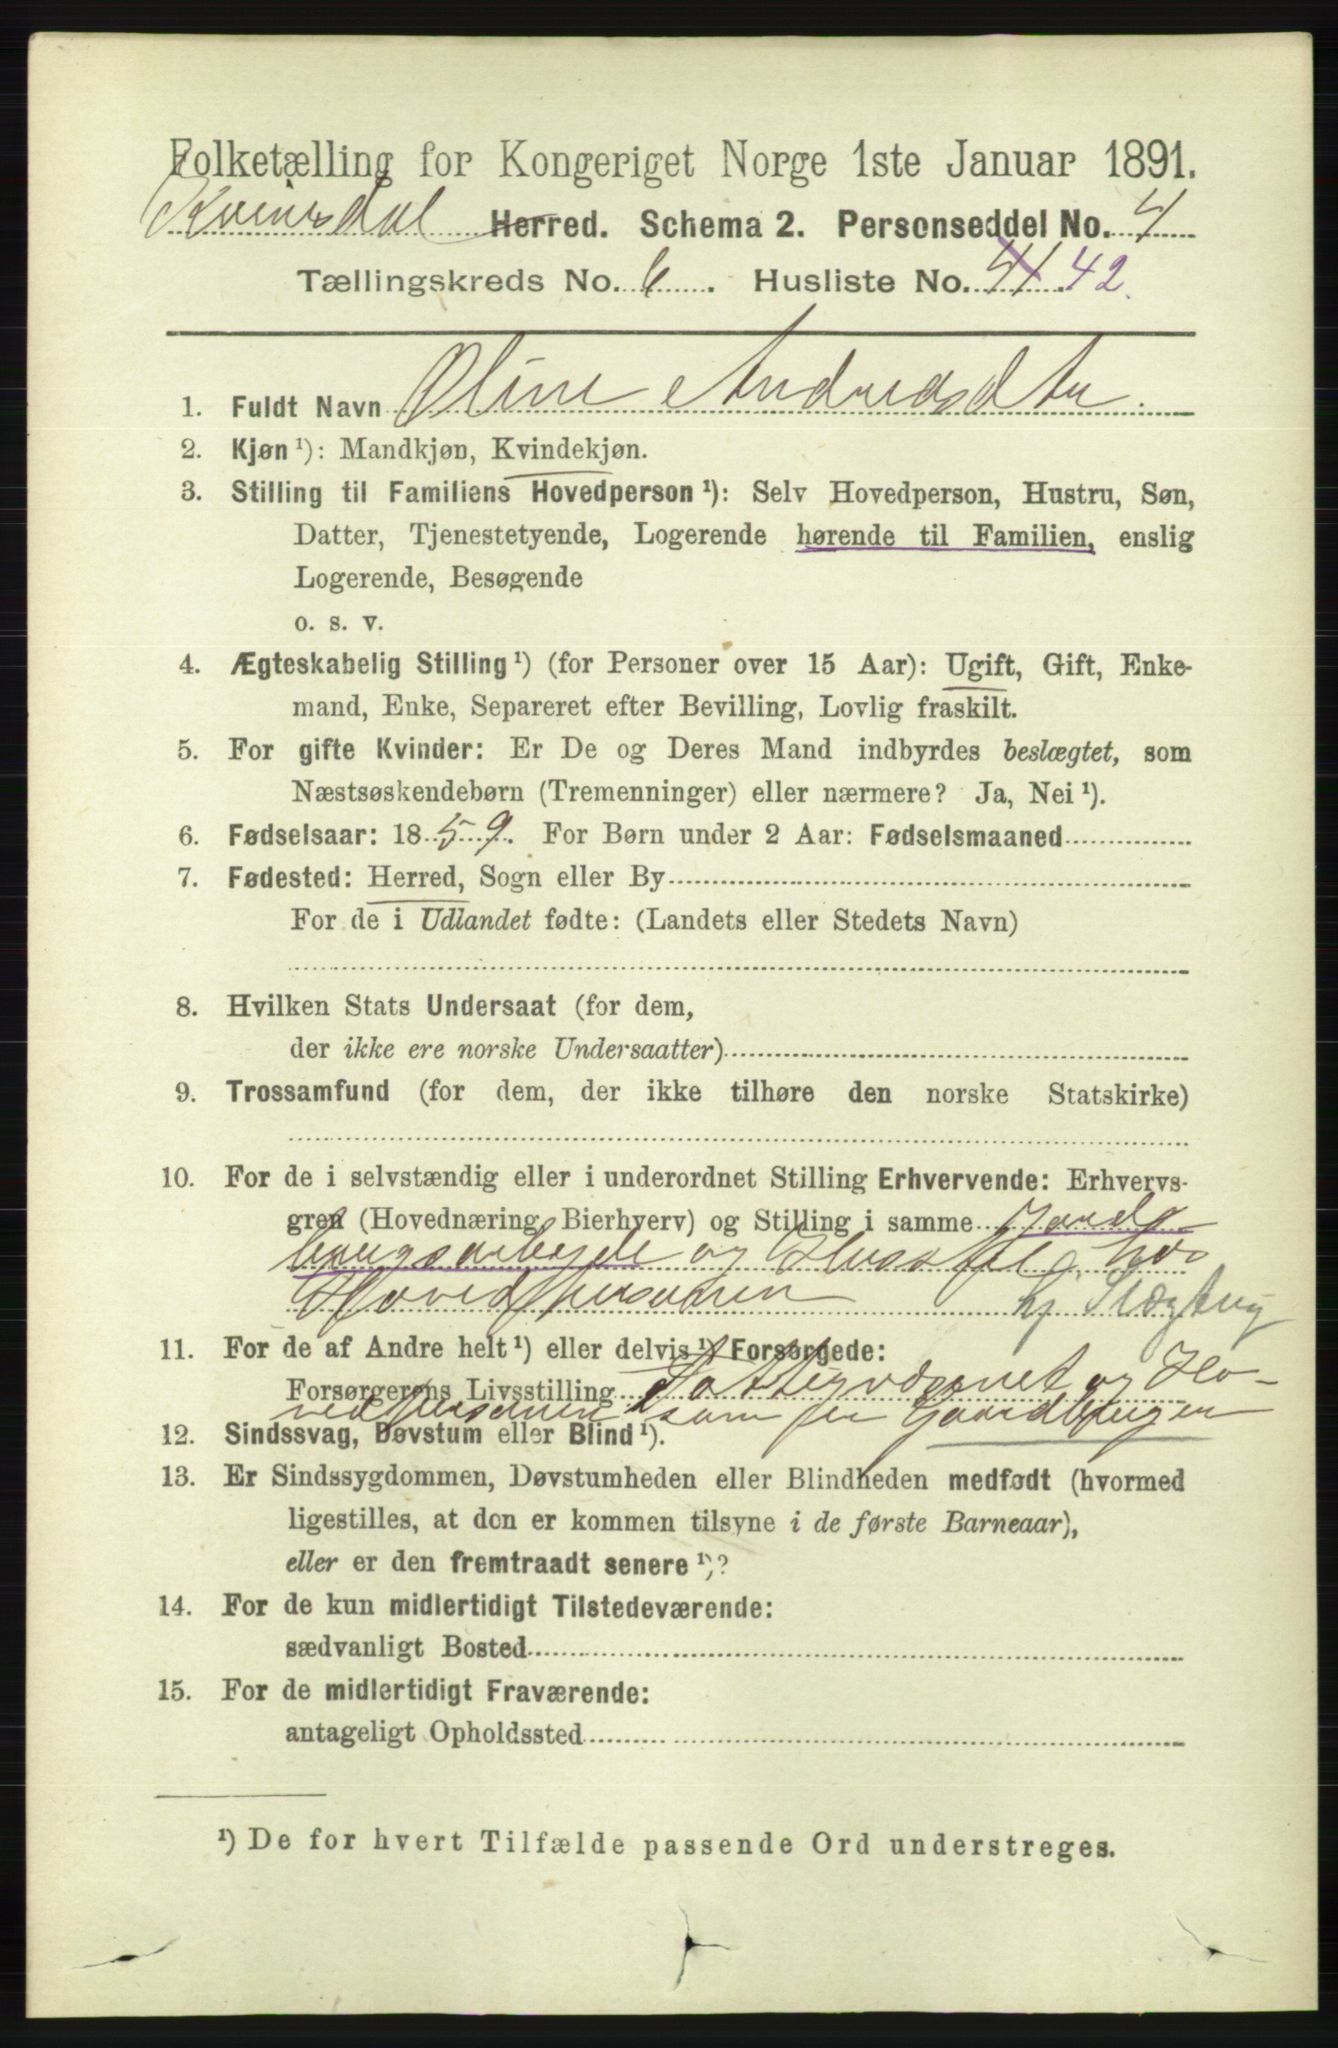 Folketælling for Kongeriget Norge 1ste Januar 1891.
Kvinesdal Herred. Schema 2. Personseddel No. 4
Tællingskreds No. 6. Husliste No. 41. 42.
1. Fuldt Navn Oline Andreasdtr.
2. Kjøn ¹): Mandkjøn, Kvindekjøn.
3. Stilling til Familiens Hovedperson ¹): Selv Hovedperson, Hustru, Søn,
Datter, Tjenestetyende, Logerende hørende til Familien, enslig
Logerende, Besøgende
o. s. v.
4. Ægteskabelig Stilling ¹) (for Personer over 15 Aar): Ugift, Gift, Enke-
mand, Enke, Separeret efter Bevilling, Lovlig fraskilt.
5. For gifte Kvinder: Er De og Deres Mand indbyrdes beslægtet, som
Næstsøskendebørn (Tremenninger) eller nærmere? Ja, Nei ¹).
6. Fødselsaar: 1859. For Børn under 2 Aar: Fødselsmaaned
7. Fødested: Herred, Sogn eller By
For de i Udlandet fødte: (Landets eller Stedets Navn)
8. Hvilken Stats Undersaat (for dem,
der ikke ere norske Undersaatter)
9. Trossamfund (for dem, der ikke tilhøre den norske Statskirke)
10. For de i selvstændig eller i underordnet Stilling Erhvervende: Erhvervs-
gren (Hovednæring, Bierhverv) og Stilling i samme Jords-
brugsarbejde og Husstel hos
Hovedpersonen hj. Slægtng
11. For de af Andre helt ¹) eller delvis ¹) Forsørgede:
Forsørgerens Livsstilling Fattigvæsnet og Ho-
vedpersonen som er Gaardbruger
12. Sindssvag, Døvstum eller Blind ¹).
13. Er Sindssygdommen, Døvstumheden eller Blindheden medfødt (hvormed
ligestilles, at den er kommen tilsyne i de første Barneaar),
eller er den fremtraadt senere ¹)?
14. For de kun midlertidigt Tilstedeværende:
sædvanligt Bosted
15. For de midlertidigt Fraværende:
antageligt Opholdssted
¹) De for hvert Tilfælde passende Ord understreges.